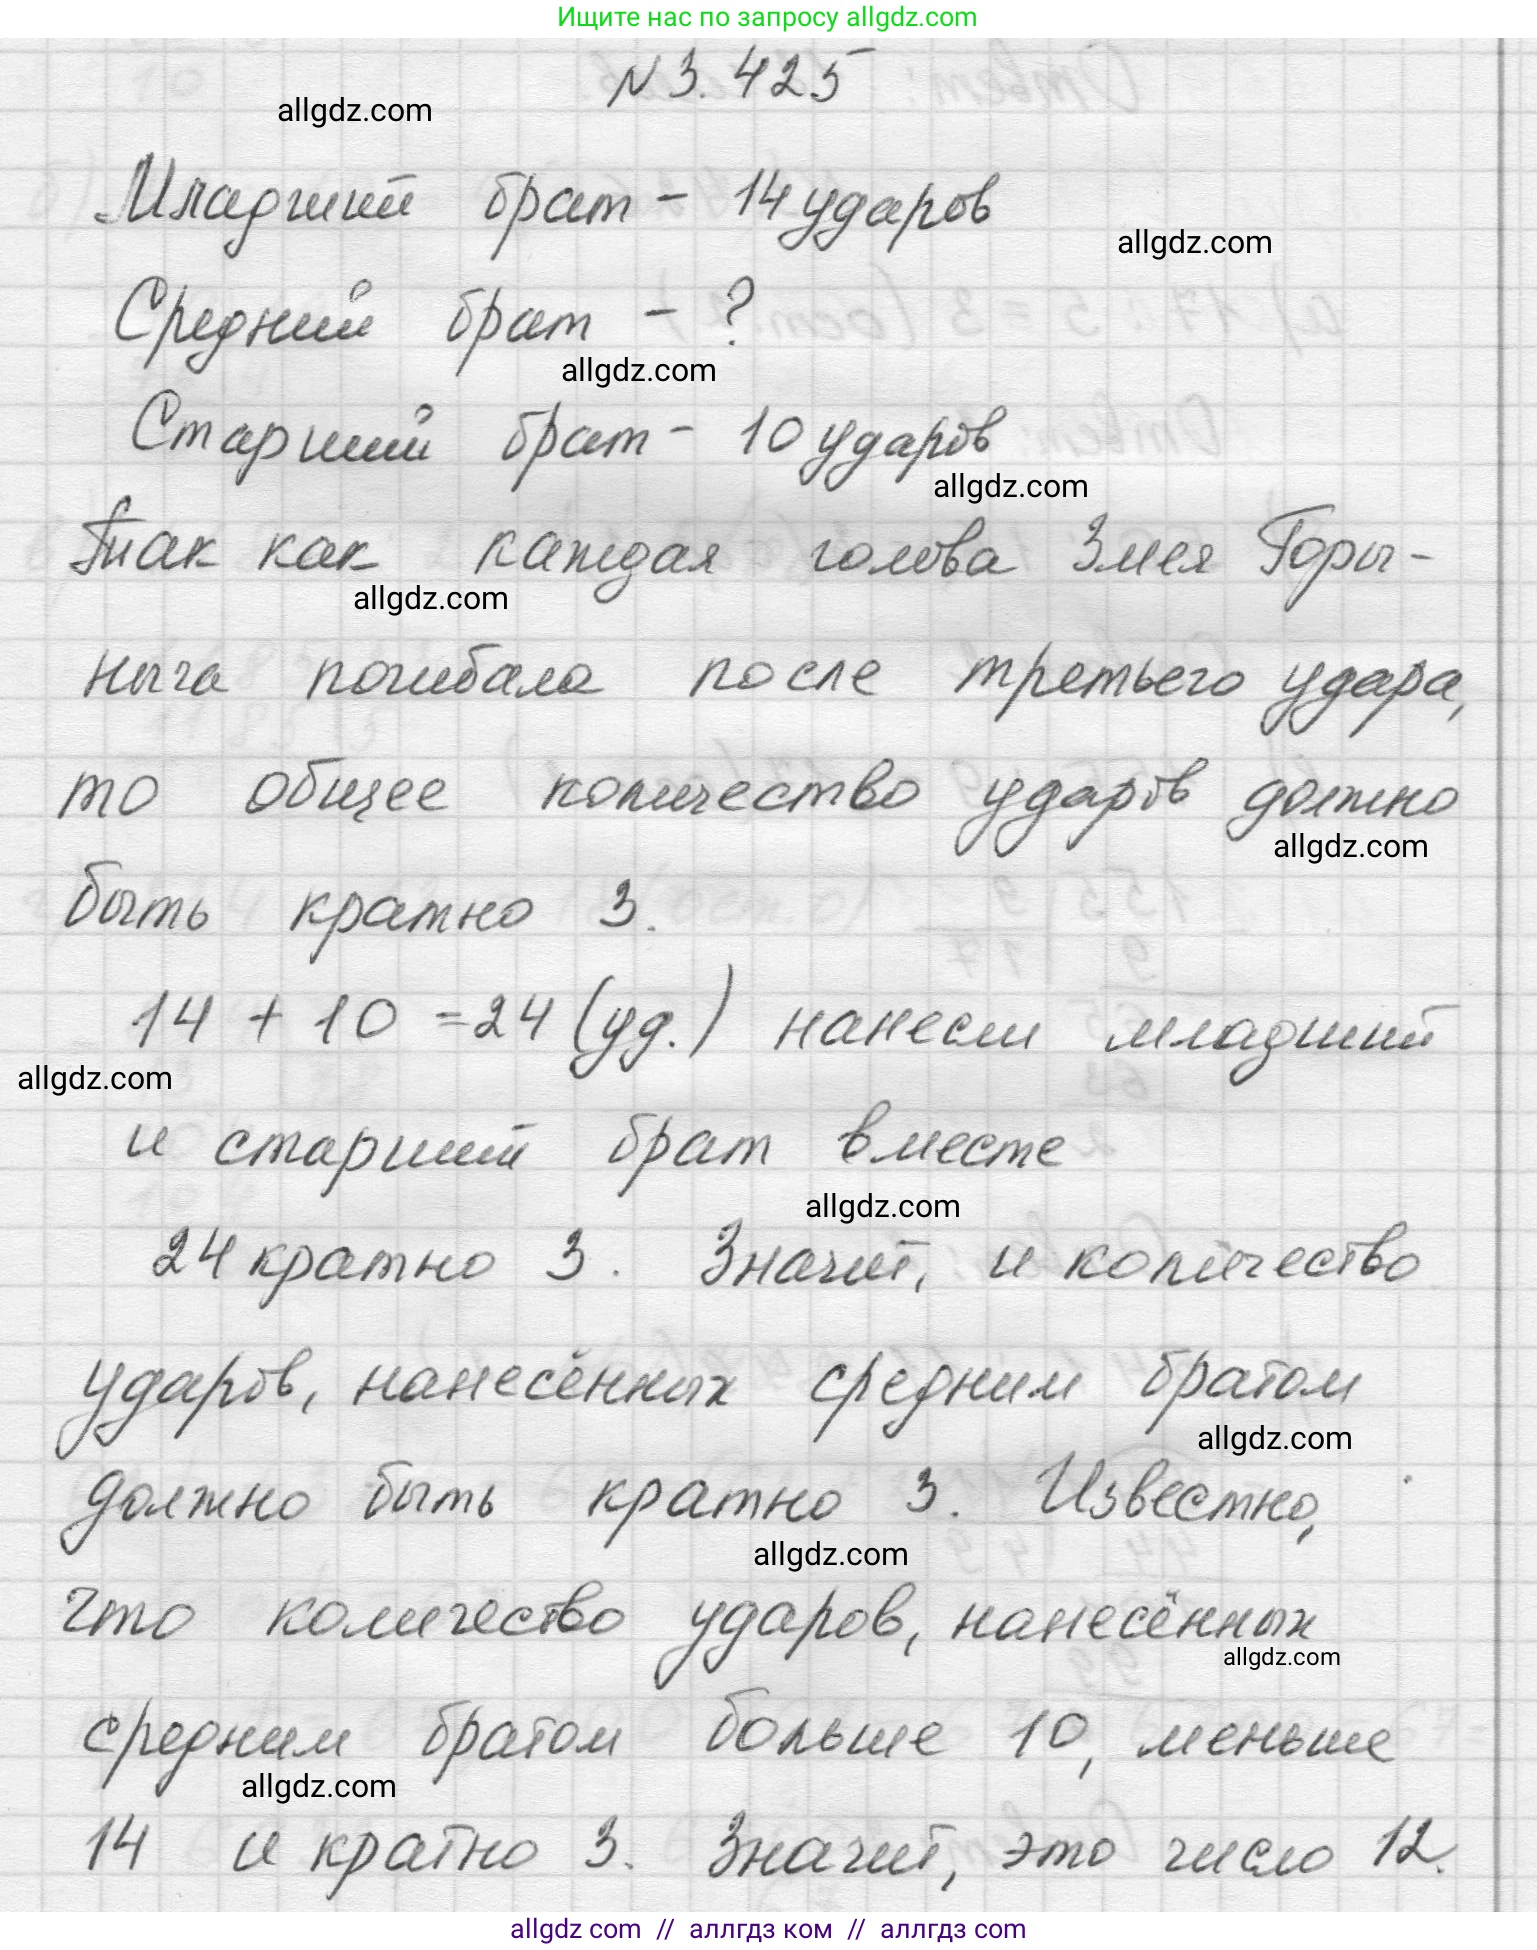 Ищите нас по запросу allgdz.com
N 3.425
allgdz.com
Младший брат - 14 ударов
allgdz.com
Средний брат - ?
allgdz.com
Старший брат - 10 ударов
allgdz.com
Так как каждая голова Змея Горы-
allgdz.com
ныча погибала после третьего удара,
то общее количество ударов должно
allgdz.com
быть кратно 3.
14 + 10 = 24 (уд.) нанесли младший
allgdz.com
и старший брат вместе
allgdz.com
24 кратно 3. Значит, и количество
ударов, нанесённых средним братом
allgdz.com
должно быть кратно 3. Известно,
allgdz.com
что количество ударов, нанесённых
allgdz.com
средним братом больше 10, меньше
allgdz.com
14 и кратно 3. Значит, это число 12.
allgdz com // аллгдз ком // аллгдз com